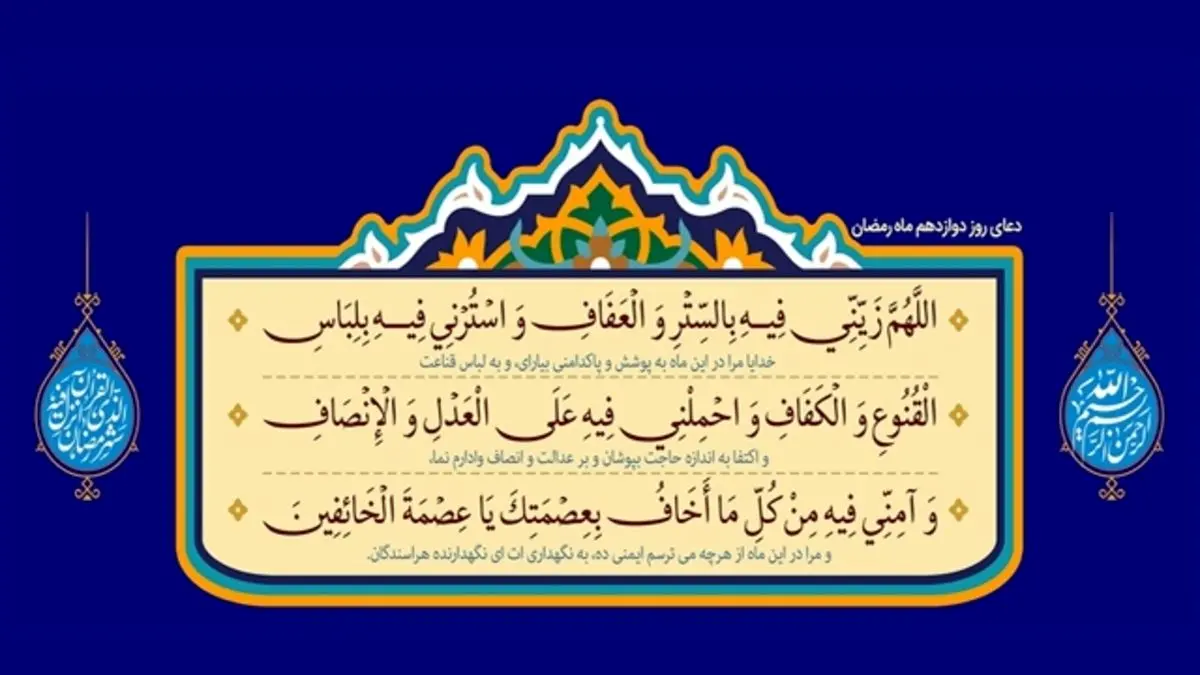 دعای روز دوازدهم ماه رمضان
اللَّهُمَّ زَيِّنِّي فِيهِ بِالسِّتْرِ وَ الْعَفَافِ وَ اسْتُرْنِي فِيهِ بِلِبَاسِ
خدایا مرا در این ماه به پوشش و پاکدامنی بیارای، و به لباس قناعت
الْقُنُوعِ وَ الْكَفَافِ وَ احْمِلْنِي فِيهِ عَلَى الْعَدْلِ وَ الْإِنْصَافِ
و اکتفا به اندازه حاجت بپوشان و بر عدالت و انصاف وادارم نما،
وَ آمِنِّي فِيهِ مِنْ كُلِّ مَا أَخَافُ بِعِصْمَتِكَ يَا عِصْمَةَ الْخَائِفِينَ
و مرا در این ماه از هرچه می ترسم ایمنی ده، به نگهداری ات ای نگهدارنده هراسندگان.
بسم الله الرحمن الرحيم
شهر رمضان الذي انزل فيه القرآن